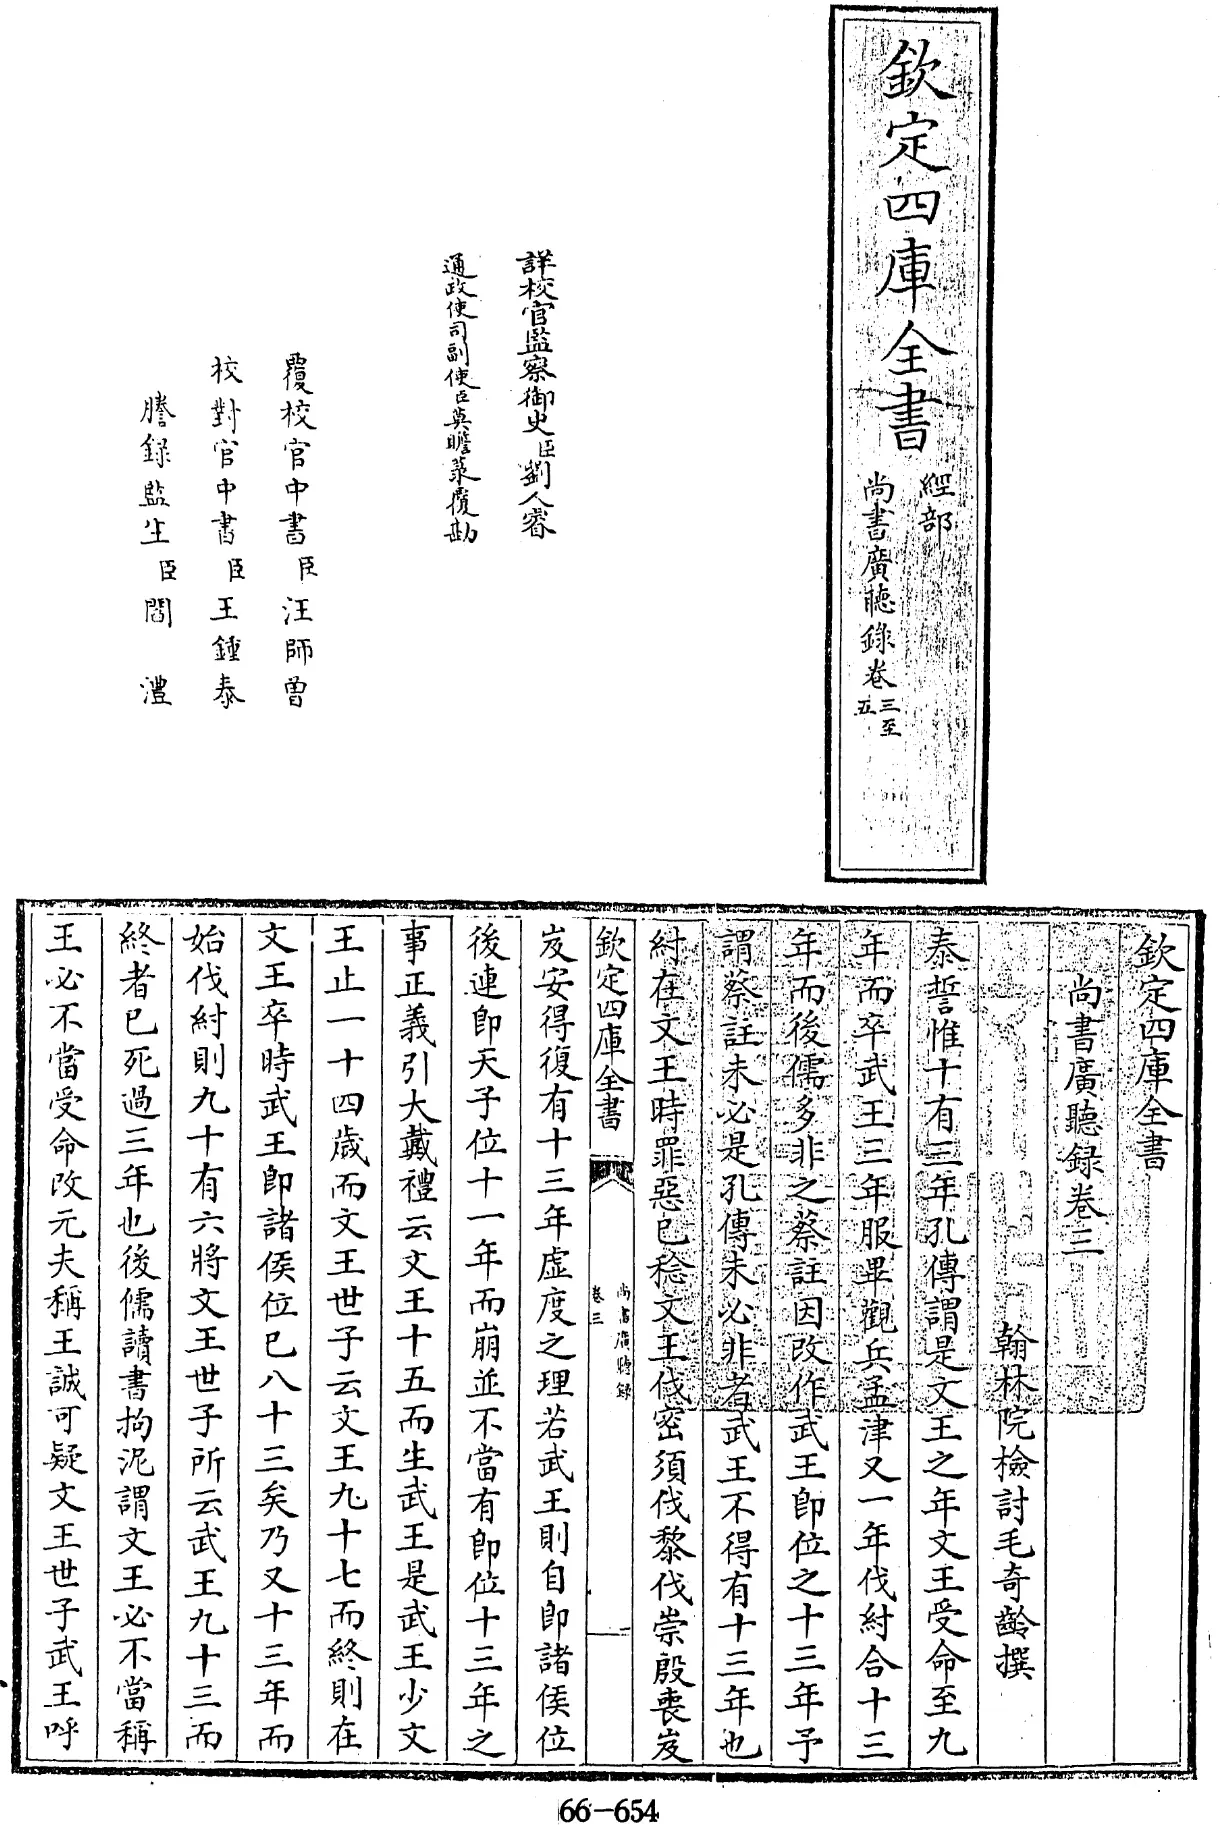 欽定四庫全書
經部
尚書廣聽錄卷三至五
詳校官監察御史臣劉人睿
通政使司副使臣莫瞻菉覆勘
覆校官中書臣汪師曾
校對官中書臣王鍾泰
謄錄監生臣閻澧
欽定四庫全書
尚書廣聽録卷三
翰林院檢討毛奇齡撰
泰誓惟十有三年孔傳謂是文王之年文王受命至九
年而卒武王三年服畢觀兵孟津又一年伐紂合十三
年而後儒多非之蔡註因改作武王即位之十三年予
謂蔡註未必是孔傳未必非者武王不得有十三年也
紂在文王時罪惡已稔文王伐密須伐黎伐崇殷喪岌
欽定四庫全書
尚書廣聽録
卷三
一
岌安得復有十三年虛度之理若武王則自即諸侯位
後連即天子位十一年而崩並不當有即位十三年之
事正義引大戴禮云文王十五而生武王是武王少文
王止一十四歳而文王世子云文王九十七而終則在
文王卒時武王即諸侯位已八十三矣乃又十三年而
始伐紂則九十有六將文王世子所云武王九十三而
終者已死過三年也後儒讀書拘泥謂文王必不當稱
王必不當受命改元夫稱王誠可疑文王世子武王呼
66-654